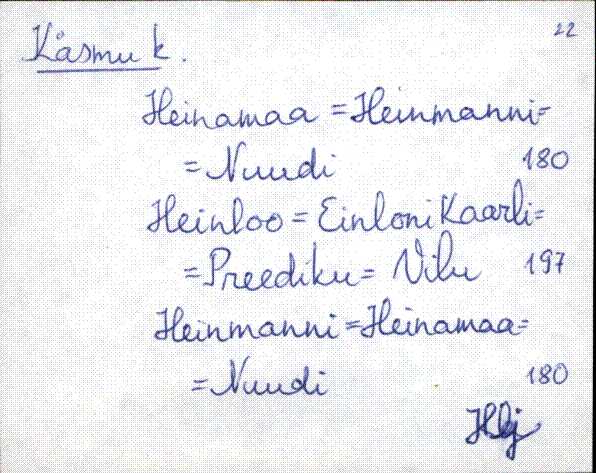 22
Käsmu k.
Heinamaa = Heinmanni =
= Nuudi 180
Heinloo = Einloni Kaarli =
= Preediku = Vilu 197
Heinmanni = Heinamaa =
= Nuudi 180